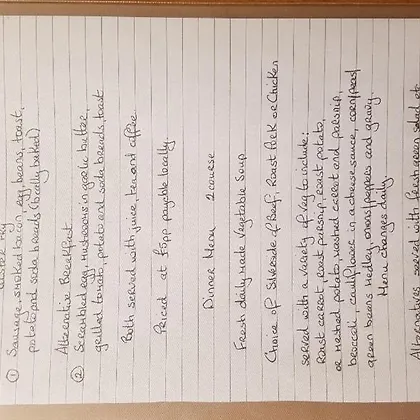 Ulster Fry
① Sausage, smoked bacon, egg, beans, toast,
potato and soda breads (locally baked)
Alternative Breakfast
② Scrambled egg, mushrooms in garlic butter,
grilled tomato, potato and soda breads, toast
Both served with juice, tea and coffee.
Priced at £5pp payable locally.
Dinner Menu 2 course
Fresh daily made Vegetable Soup
Choice of Silverside of Beef, Roast Pork or Chicken
served with a variety of veg to include:
Roast carrot, roast parsnip, roast potato,
or mashed potato, mashed carrot and parsnip,
broccoli, cauliflower in a cheese sauce, corn/peas/
green beans medley, onions/peppers and gravy.
Menu changes daily.
Alternatives served with fresh green salad etc